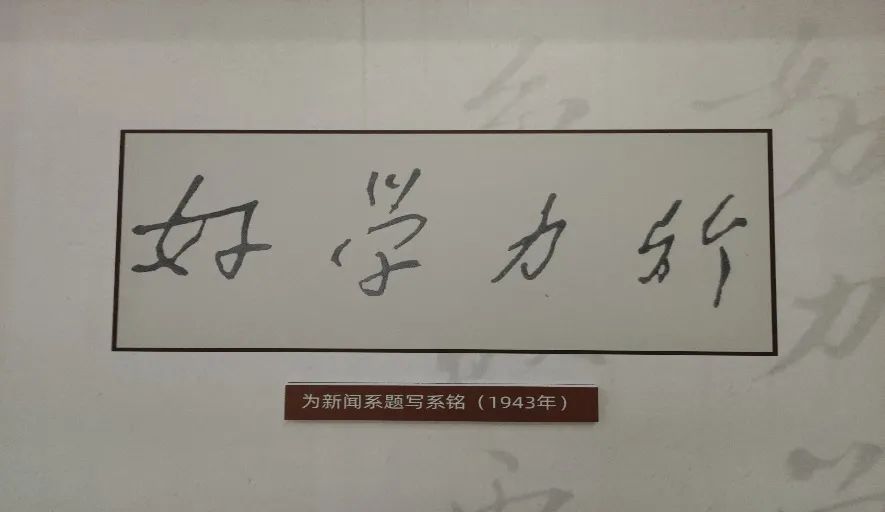 好学力行
为新闻系题写系铭（1943年）